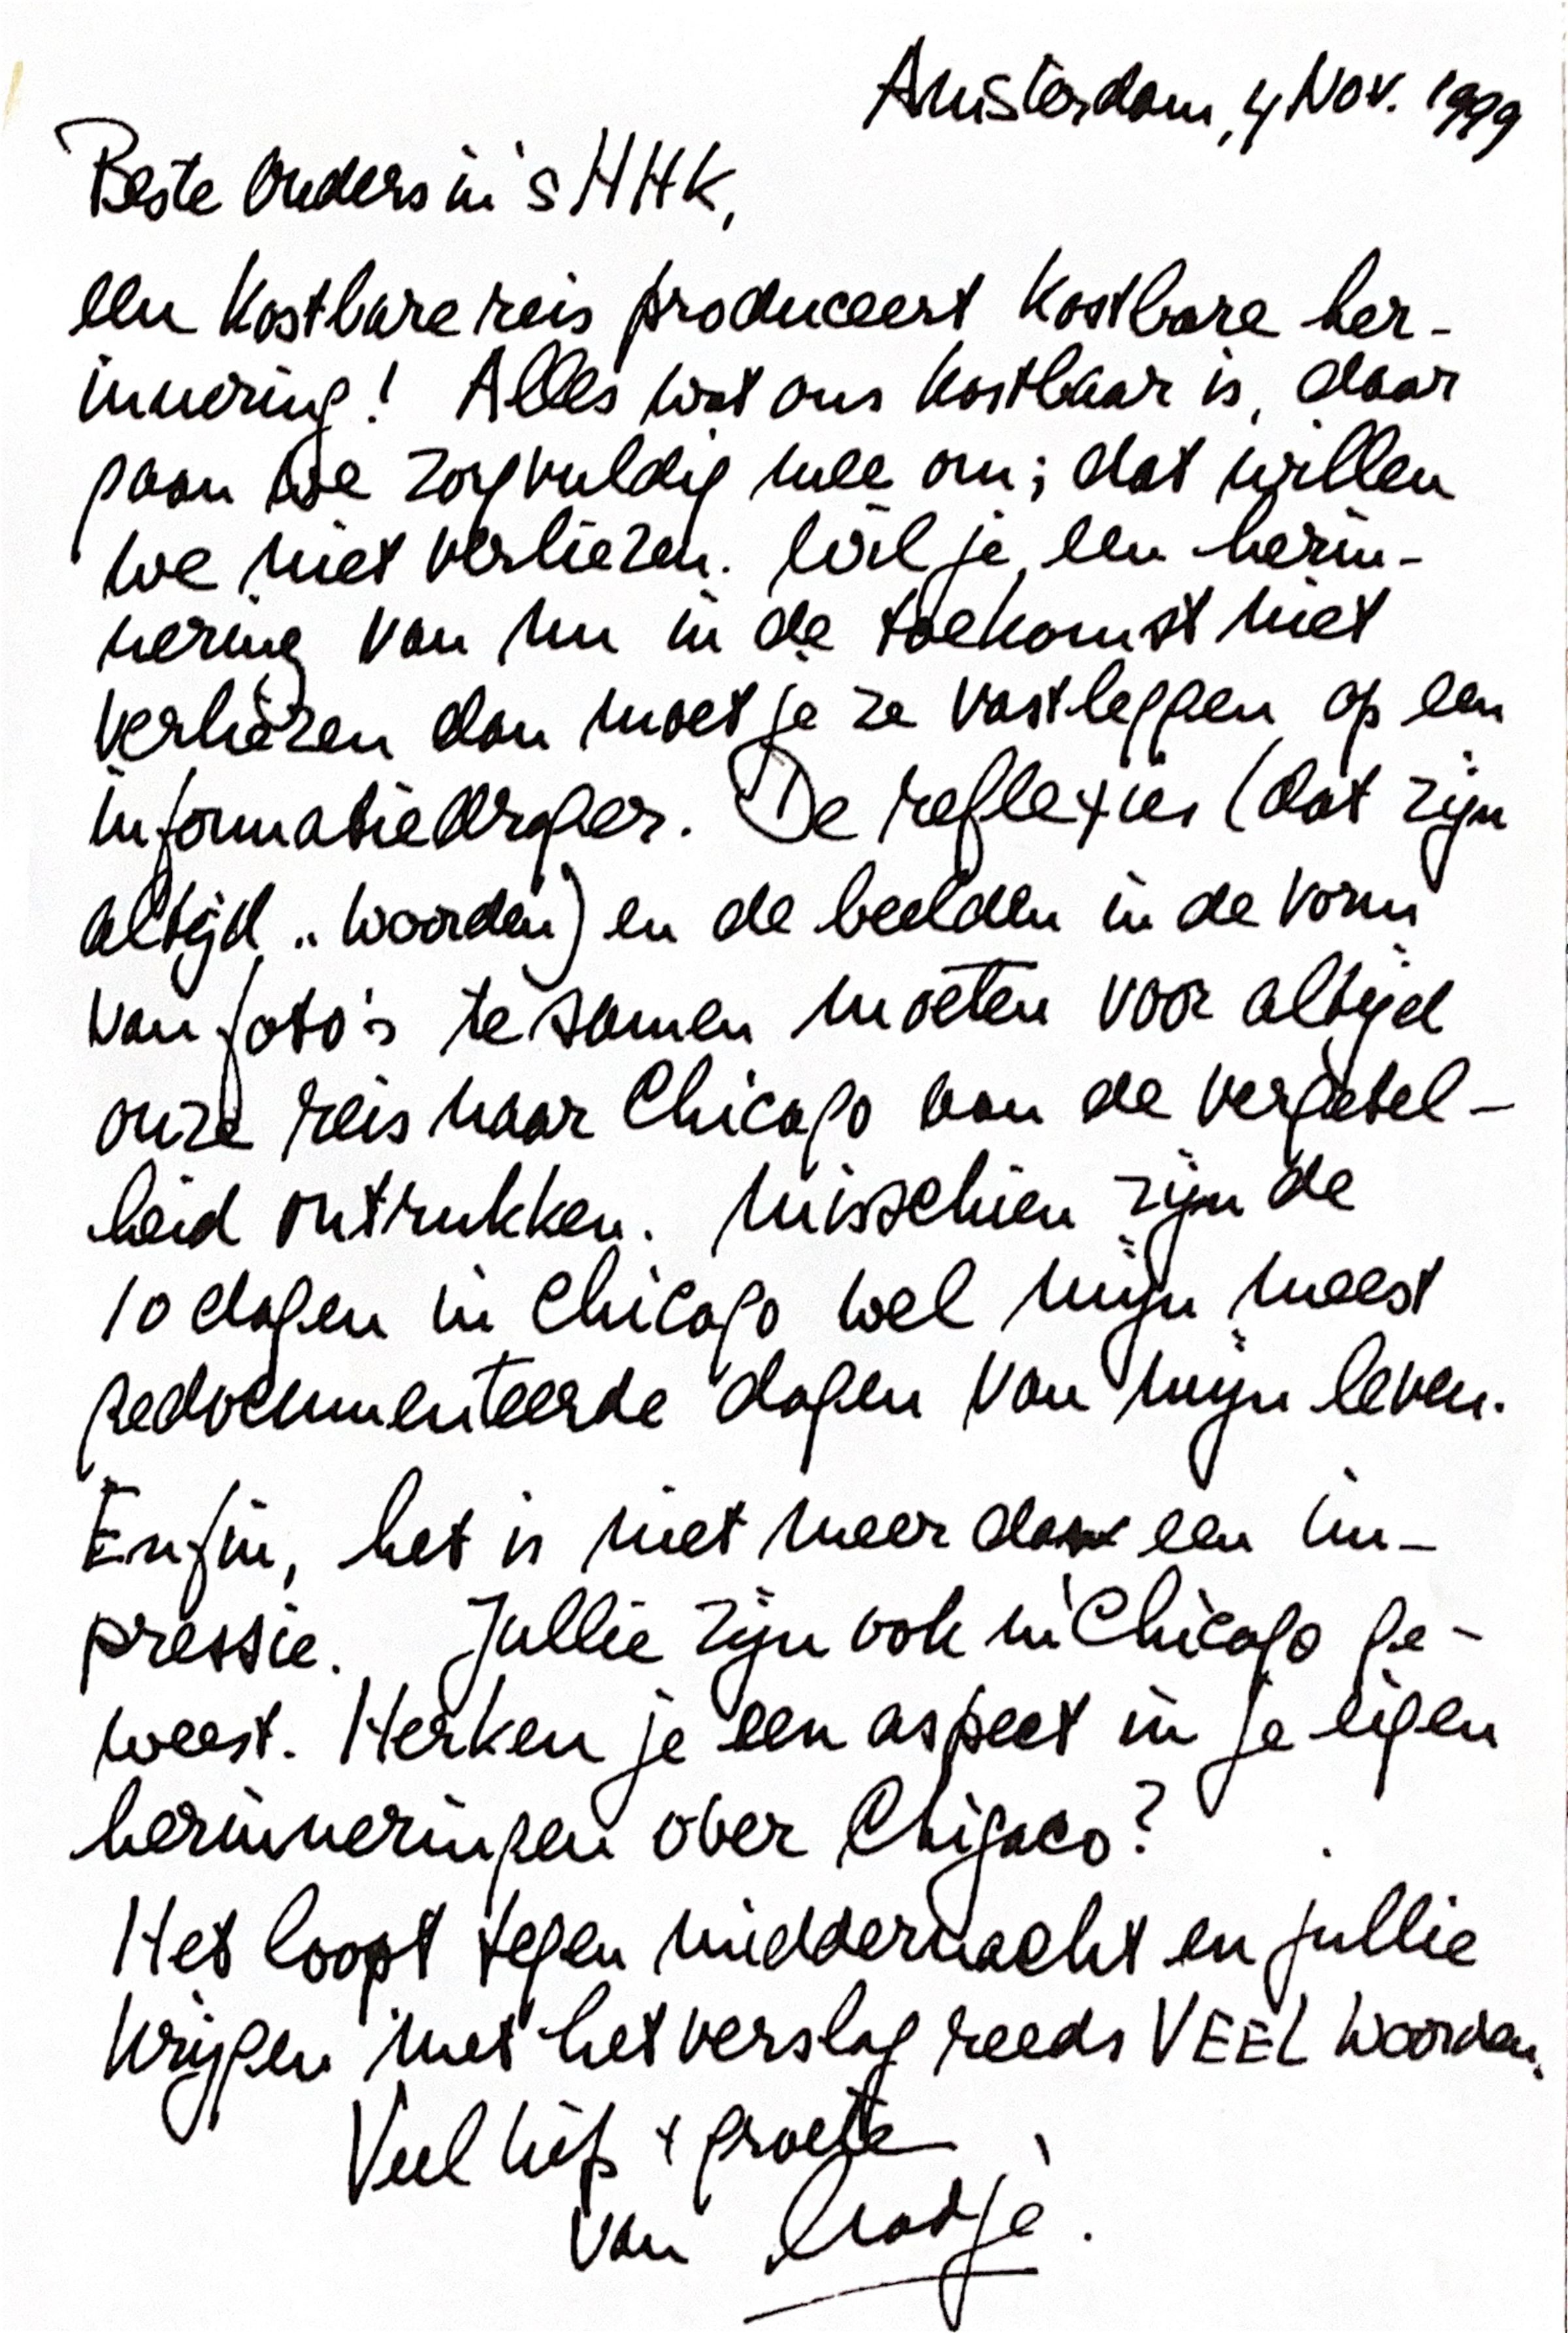 Amsterdam, 4 Nov. 1999
Beste Ouders in 's HHK,
een kostbare reis produceert kostbare her-
innering! Alles wat ons kostbaar is, daar
gaan we zorgvuldig mee om; dat willen
we niet verliezen. Wil je een herin-
nering van nu in de toekomst niet
verliezen dan moet je ze vastleggen op een
informatiedrager. De reflexies (dat zijn
altijd „ woorden) en de beelden in de vorm
van foto's te samen moeten voor altijd
onze reis naar Chicago aan de vergetel-
heid ontrukken. Misschien zijn de
10 dagen in Chicago wel mijn meest
gedocumenteerde dagen van mijn leven.
Enfin, het is niet meer dan een im-
pressie. Jullie zijn ook in Chicago ge-
weest. Herken je een aspect in je eigen
herinneringen over Chigaco?
Het loopt tegen middernacht en jullie
krijgen met het verslag reeds VEEL woorden.
Veel liefs + groete
van